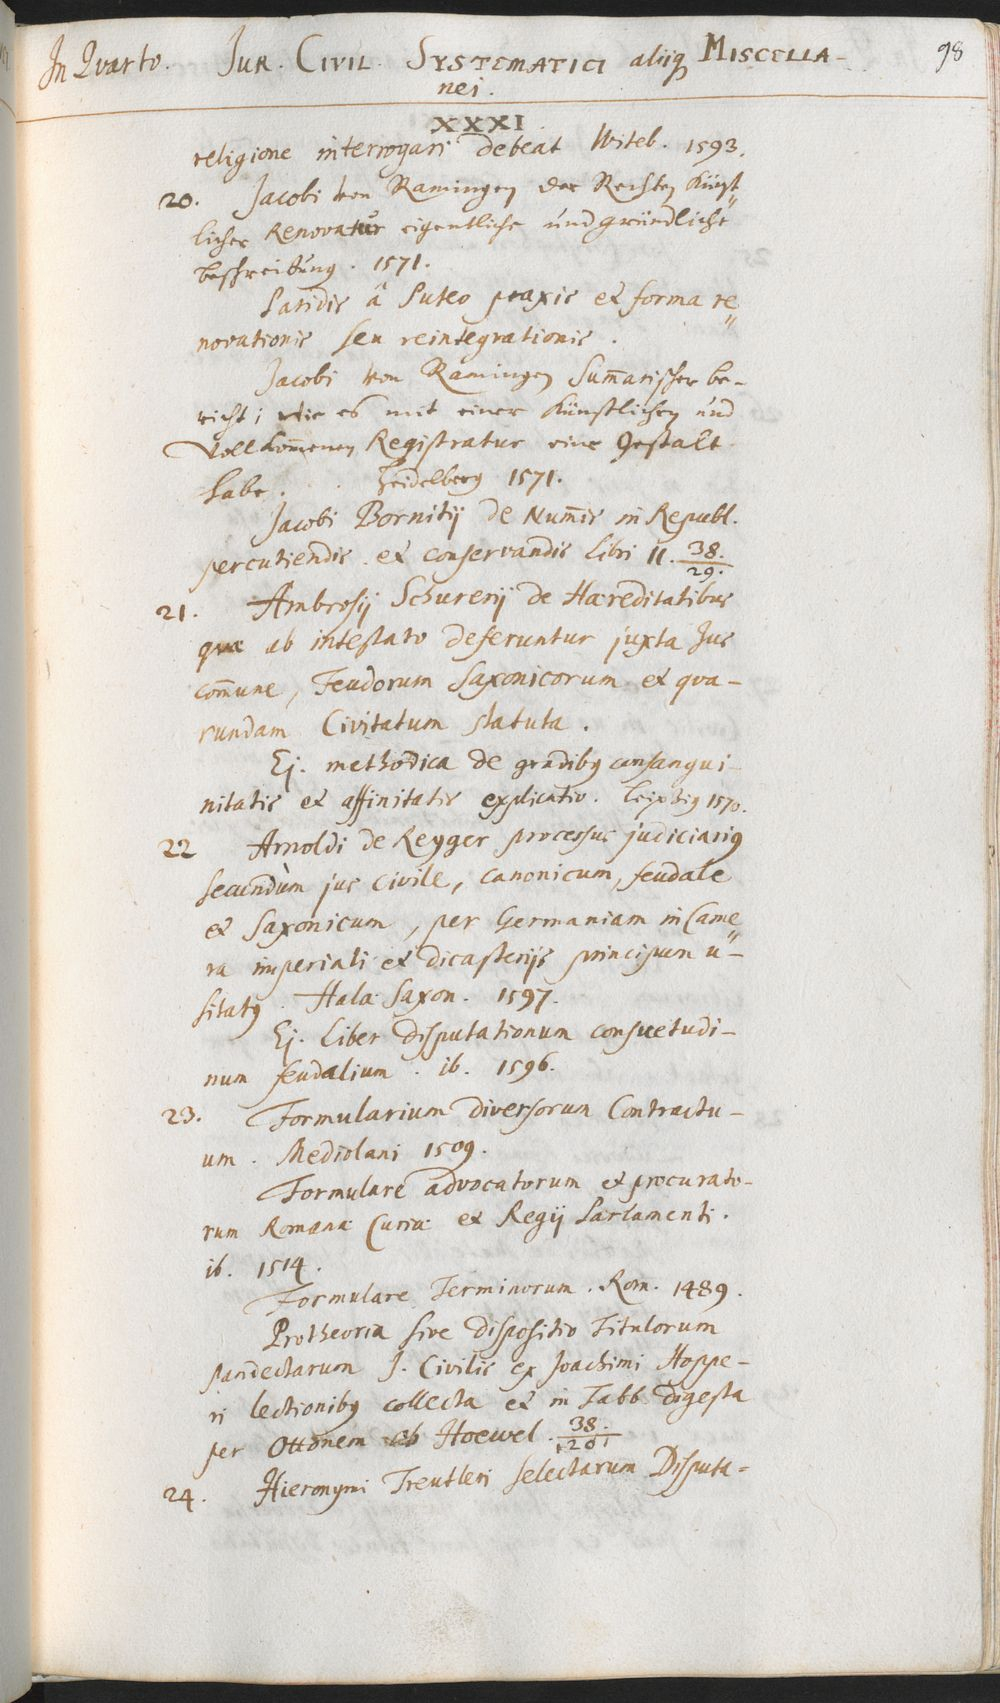 In Quarto. JUR. CIVIL. SYSTEMATICI aliiq MISCELLA- 98
nei.
XXXI
religione interrogari debeat Witeb. 1593.
20. Jacobi von Ramingen der Rechten Künst
licher Renovatur eigentliche und gründliche
beschreibung. 1571.
Lapidis â Puteo praxis et forma re
novationis seu reintegrationis.
Jacobi von Ramingen Sum̄arischer be-
richt, wie es mit einer Künstlichen und
Vollkom̄enen Registratur eine Gestalt
habe. Heidelberg 1571.
Jacobi Bornitij de Num̄is in Republ.
percutiendis et conservandis Libri II. 38./29.
21. Ambrosij Schurerij de Haereditatibus
quae ab intestato deferuntur juxta Jus
com̄une, Feudorum Saxonicorum et qua-
rundam Civitatum statuta.
Ej. methodica de gradibq consangui-
nitatis et affinitatis explicatio. Leiptzig 1570.
22 Arnoldi de Reyger processus judiciariq
secundùm jus civile, canonicum, feudale
et Saxonicum, per Germaniam in Came
ra imperiali et dicasterijs principum u-
sitatq. Halae Saxon. 1597.
Ej. Liber disputationum consuetudi-
num feudalium. ib. 1596.
23. Formularium diversorum Contractu-
um. Mediolani 1509.
Formulare advocatorum et procurato-
rum Romanae Curiae et Regij Parlamenti.
ib. 1514.
Formulare Terminorum. Rom. 1489.
Protheoria sive dispositio Titulorum
Pandectarum J. Civilis ex Joachimi Hoppe-
ri lectionibq collecta et in Tabb digesta
per Ottonem ab Hoewel. 38./20
24. Hieronymi Treutleri selectarum Disputa-